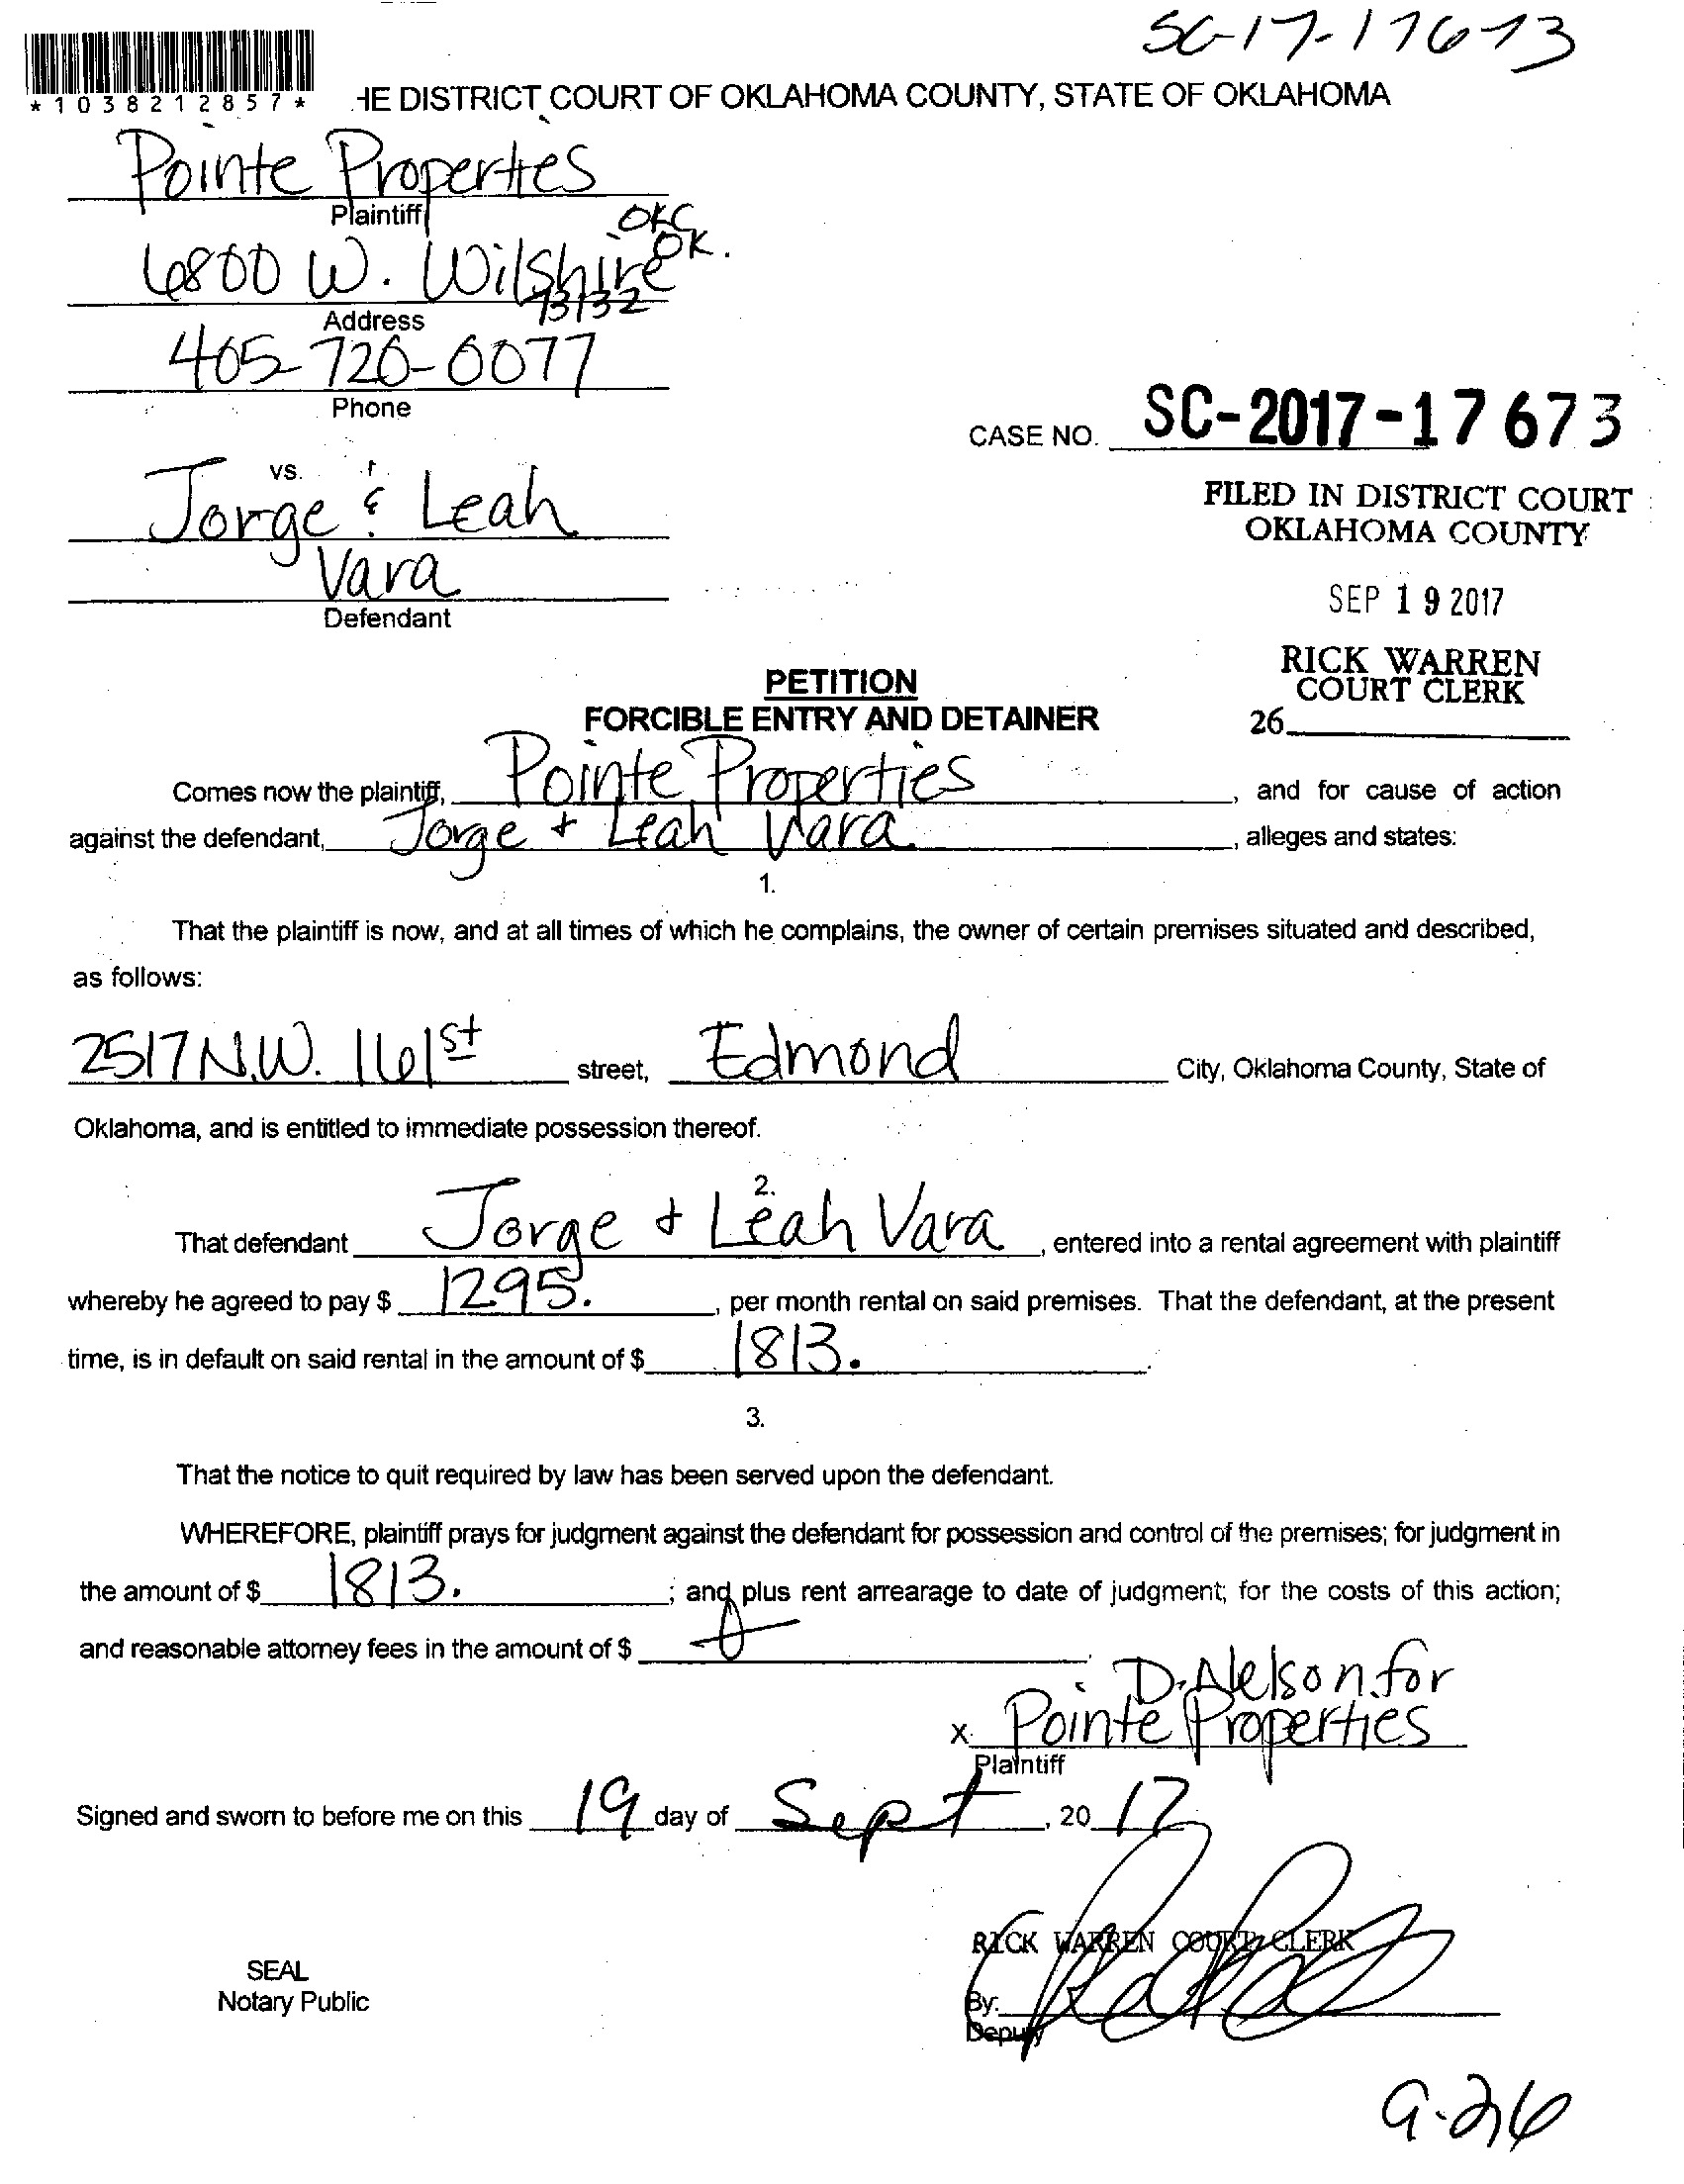 SC-17-17673
*1038212857*
HE DISTRICT COURT OF OKLAHOMA COUNTY, STATE OF OKLAHOMA
Pointe Properties
Plaintiff
6800 W. Wilshire OKC OK. 73132
Address
405-720-0077
Phone
CASE NO. SC-2017-17673
vs.
Jorge & Leah
Vara
Defendant
FILED IN DISTRICT COURT
OKLAHOMA COUNTY
SEP 19 2017
RICK WARREN
COURT CLERK
26
PETITION
FORCIBLE ENTRY AND DETAINER
Comes now the plaintiff, Pointe Properties, and for cause of action
against the defendant, Jorge + Leah Vara, alleges and states:
1.
That the plaintiff is now, and at all times of which he complains, the owner of certain premises situated and described,
as follows:
2517 N.W. 161st street, Edmond City, Oklahoma County, State of
Oklahoma, and is entitled to immediate possession thereof.
2.
That defendant Jorge + Leah Vara, entered into a rental agreement with plaintiff
whereby he agreed to pay $ 1295., per month rental on said premises. That the defendant, at the present
time, is in default on said rental in the amount of $ 1813..
3.
That the notice to quit required by law has been served upon the defendant.
WHEREFORE, plaintiff prays for judgment against the defendant for possession and control of the premises; for judgment in
the amount of $ 1813. ; and plus rent arrearage to date of judgment; for the costs of this action;
and reasonable attorney fees in the amount of $ .
D. Nelson for
x Pointe Properties
Plaintiff
Signed and sworn to before me on this 19 day of Sept, 20 17
RICK WARREN COURT CLERK
SEAL
Notary Public
By:
Deputy
9-26